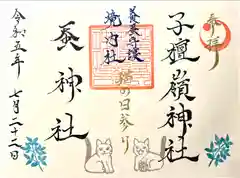 奉拝
子檀嶺神社
養蚕守護
境内社
猫の日参り
蚕神社
令和五年
七月二十二日